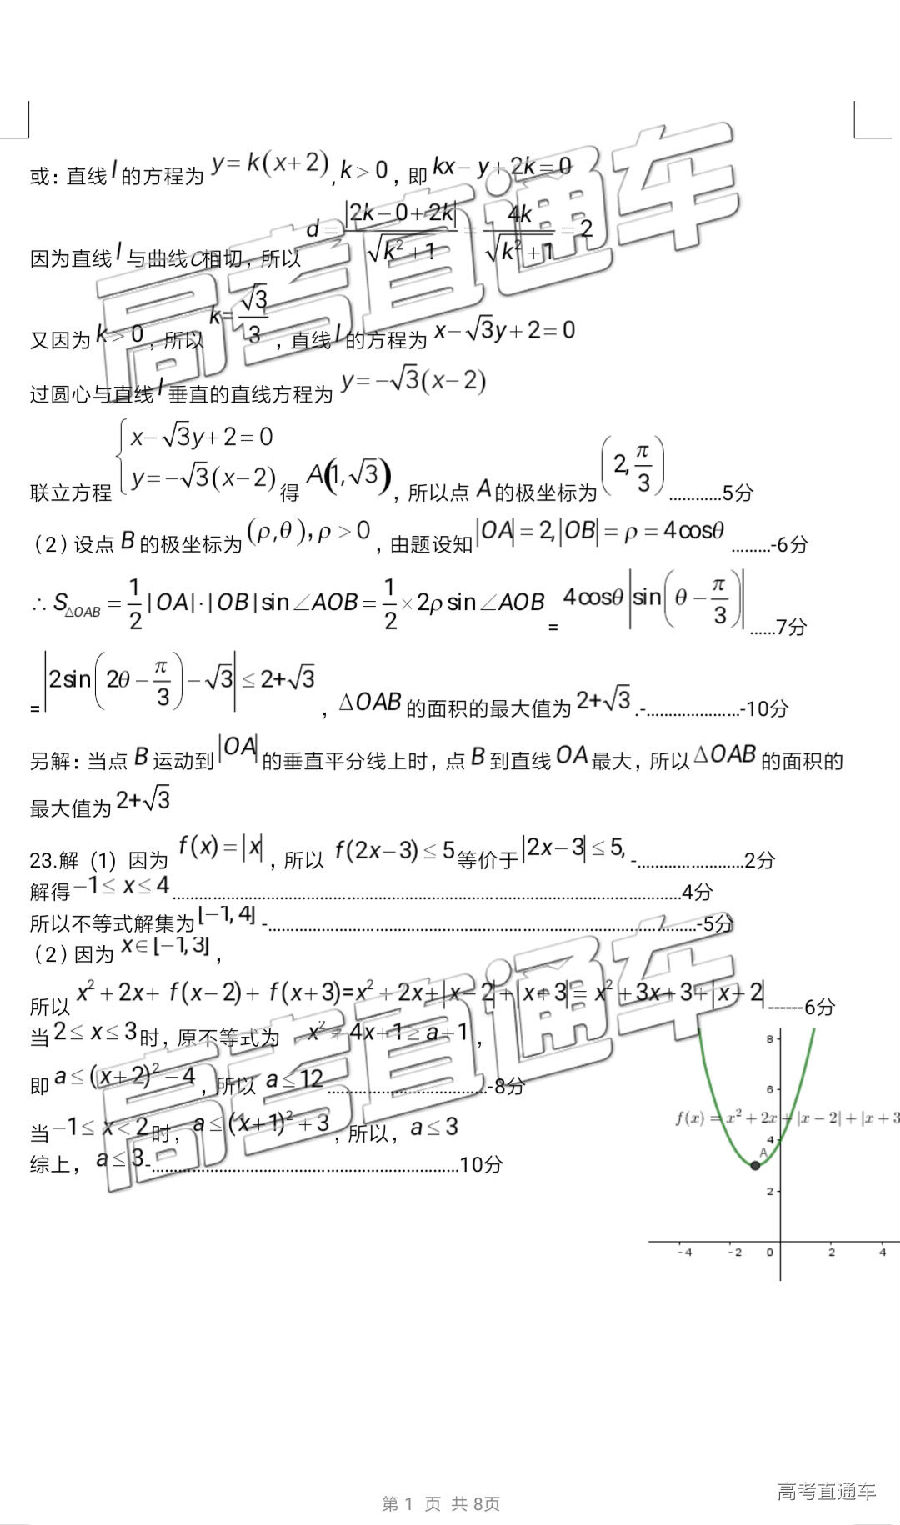 或：直线 l 的方程为 y=k(x+2), k>0，即 kx-y+2k=0
因为直线 l 与曲线C相切，所以 d=|2k-0+2k|/√(k²+1)=4k/√(k²+1)=2
又因为 k>0，所以 k=√3/3，直线 l 的方程为 x-√3y+2=0
过圆心与直线 l 垂直的直线方程为 y=-√3(x-2)
联立方程 { x-√3y+2=0
y=-√3(x-2) 得 A(1,√3)，所以点 A 的极坐标为 (2,π/3) ............5分
（2）设点 B 的极坐标为 (ρ,θ), ρ>0，由题设知 |OA|=2,|OB|=ρ=4cosθ .........-6分
∴ S△OAB=1/2|OA|·|OB|sin∠AOB=1/2×2ρsin∠AOB = 4cosθ|sin(θ-π/3)| ......7分
=|2sin(2θ-π/3)-√3|≤2+√3，△OAB 的面积的最大值为 2+√3 .-.....................-10分
另解：当点 B 运动到 |OA| 的垂直平分线上时，点 B 到直线 OA 最大，所以 △OAB 的面积的
最大值为 2+√3
23.解 (1) 因为 f(x)=|x|，所以 f(2x-3)≤5 等价于 |2x-3|≤5, -........................2分
解得 -1≤x≤4 ....................................................4分
所以不等式解集为 [-1,4] -....................................................-5分
（2）因为 x∈[-1,3]，
所以 x²+2x+f(x-2)+f(x+3)=x²+2x+|x-2|+|x+3|=x²+3x+3+|x-2| -------6分
当 2≤x≤3 时，原不等式为 x²+4x+1≥a-1，
即 a≤(x+2)²-4，所以 a≤12 ....................................-8分
当 -1≤x<2 时，a≤(x+1)²+3，所以，a≤3
综上，a≤3-....................................................10分
8
6
f(x) = x² + 2x + |x − 2| + |x + 3
4
A
2
-4 -2 0 2 4
第 1 页 共 8页
高考直通车
高考直通车
高考直通车